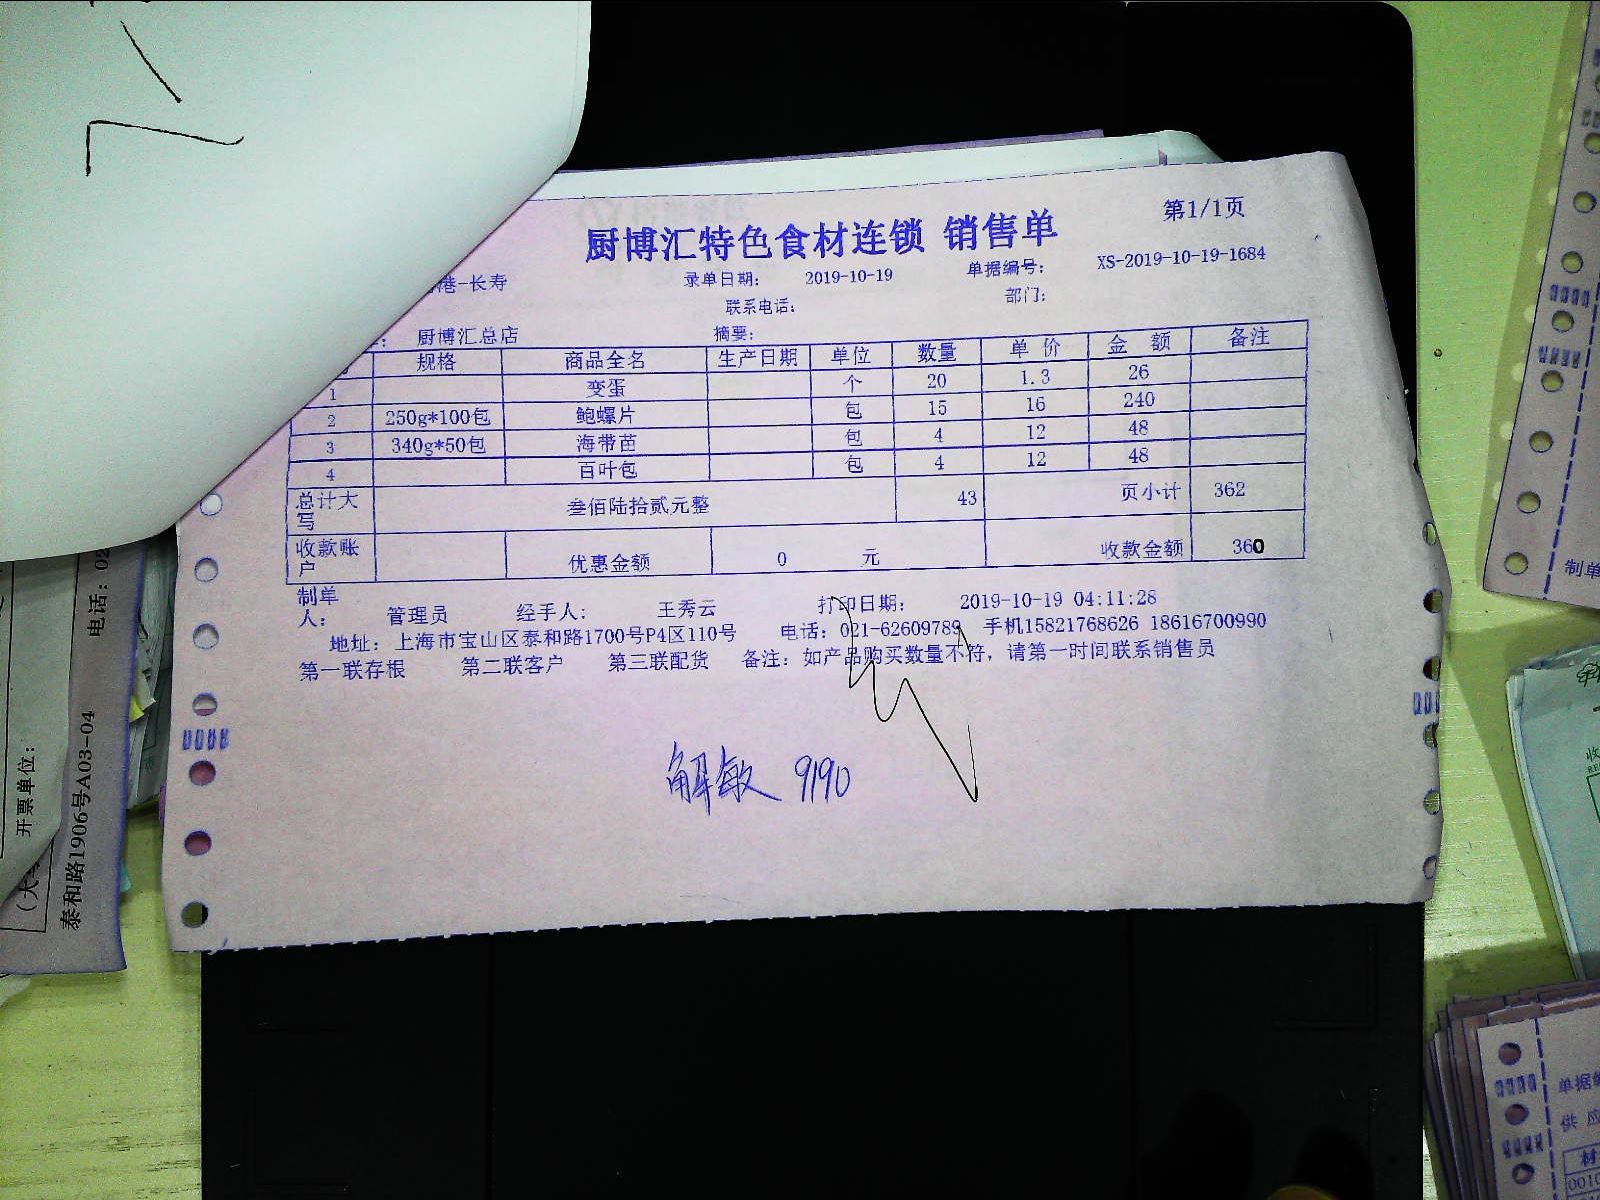 第1/1页
厨博汇特色食材连锁 销售单
港-长寿 录单日期: 2019-10-19 单据编号: XS-2019-10-19-1684
联系电话: 部门:
厨博汇总店 摘要:
规格 商品全名 生产日期 单位 数量 单价 金额 备注
1 变蛋 个 20 1.3 26
2 250g*100包 鲍螺片 包 15 16 240
3 340g*50包 海带苗 包 4 12 48
4 百叶包 包 4 12 48
总计大写 叁佰陆拾贰元整 43 页小计 362
收款账户 优惠金额 0 元 收款金额 360
制单人: 管理员 经手人: 王秀云 打印日期: 2019-10-19 04:11:28
地址: 上海市宝山区泰和路1700号P4区110号 电话: 021-62609789 手机15821768626 18616700990
第一联存根 第二联客户 第三联配货 备注: 如产品购买数量不符,请第一时间联系销售员
解敏 9190
开票单位:
泰和路1906号A03-04
电话: 02
制单
单据
供应